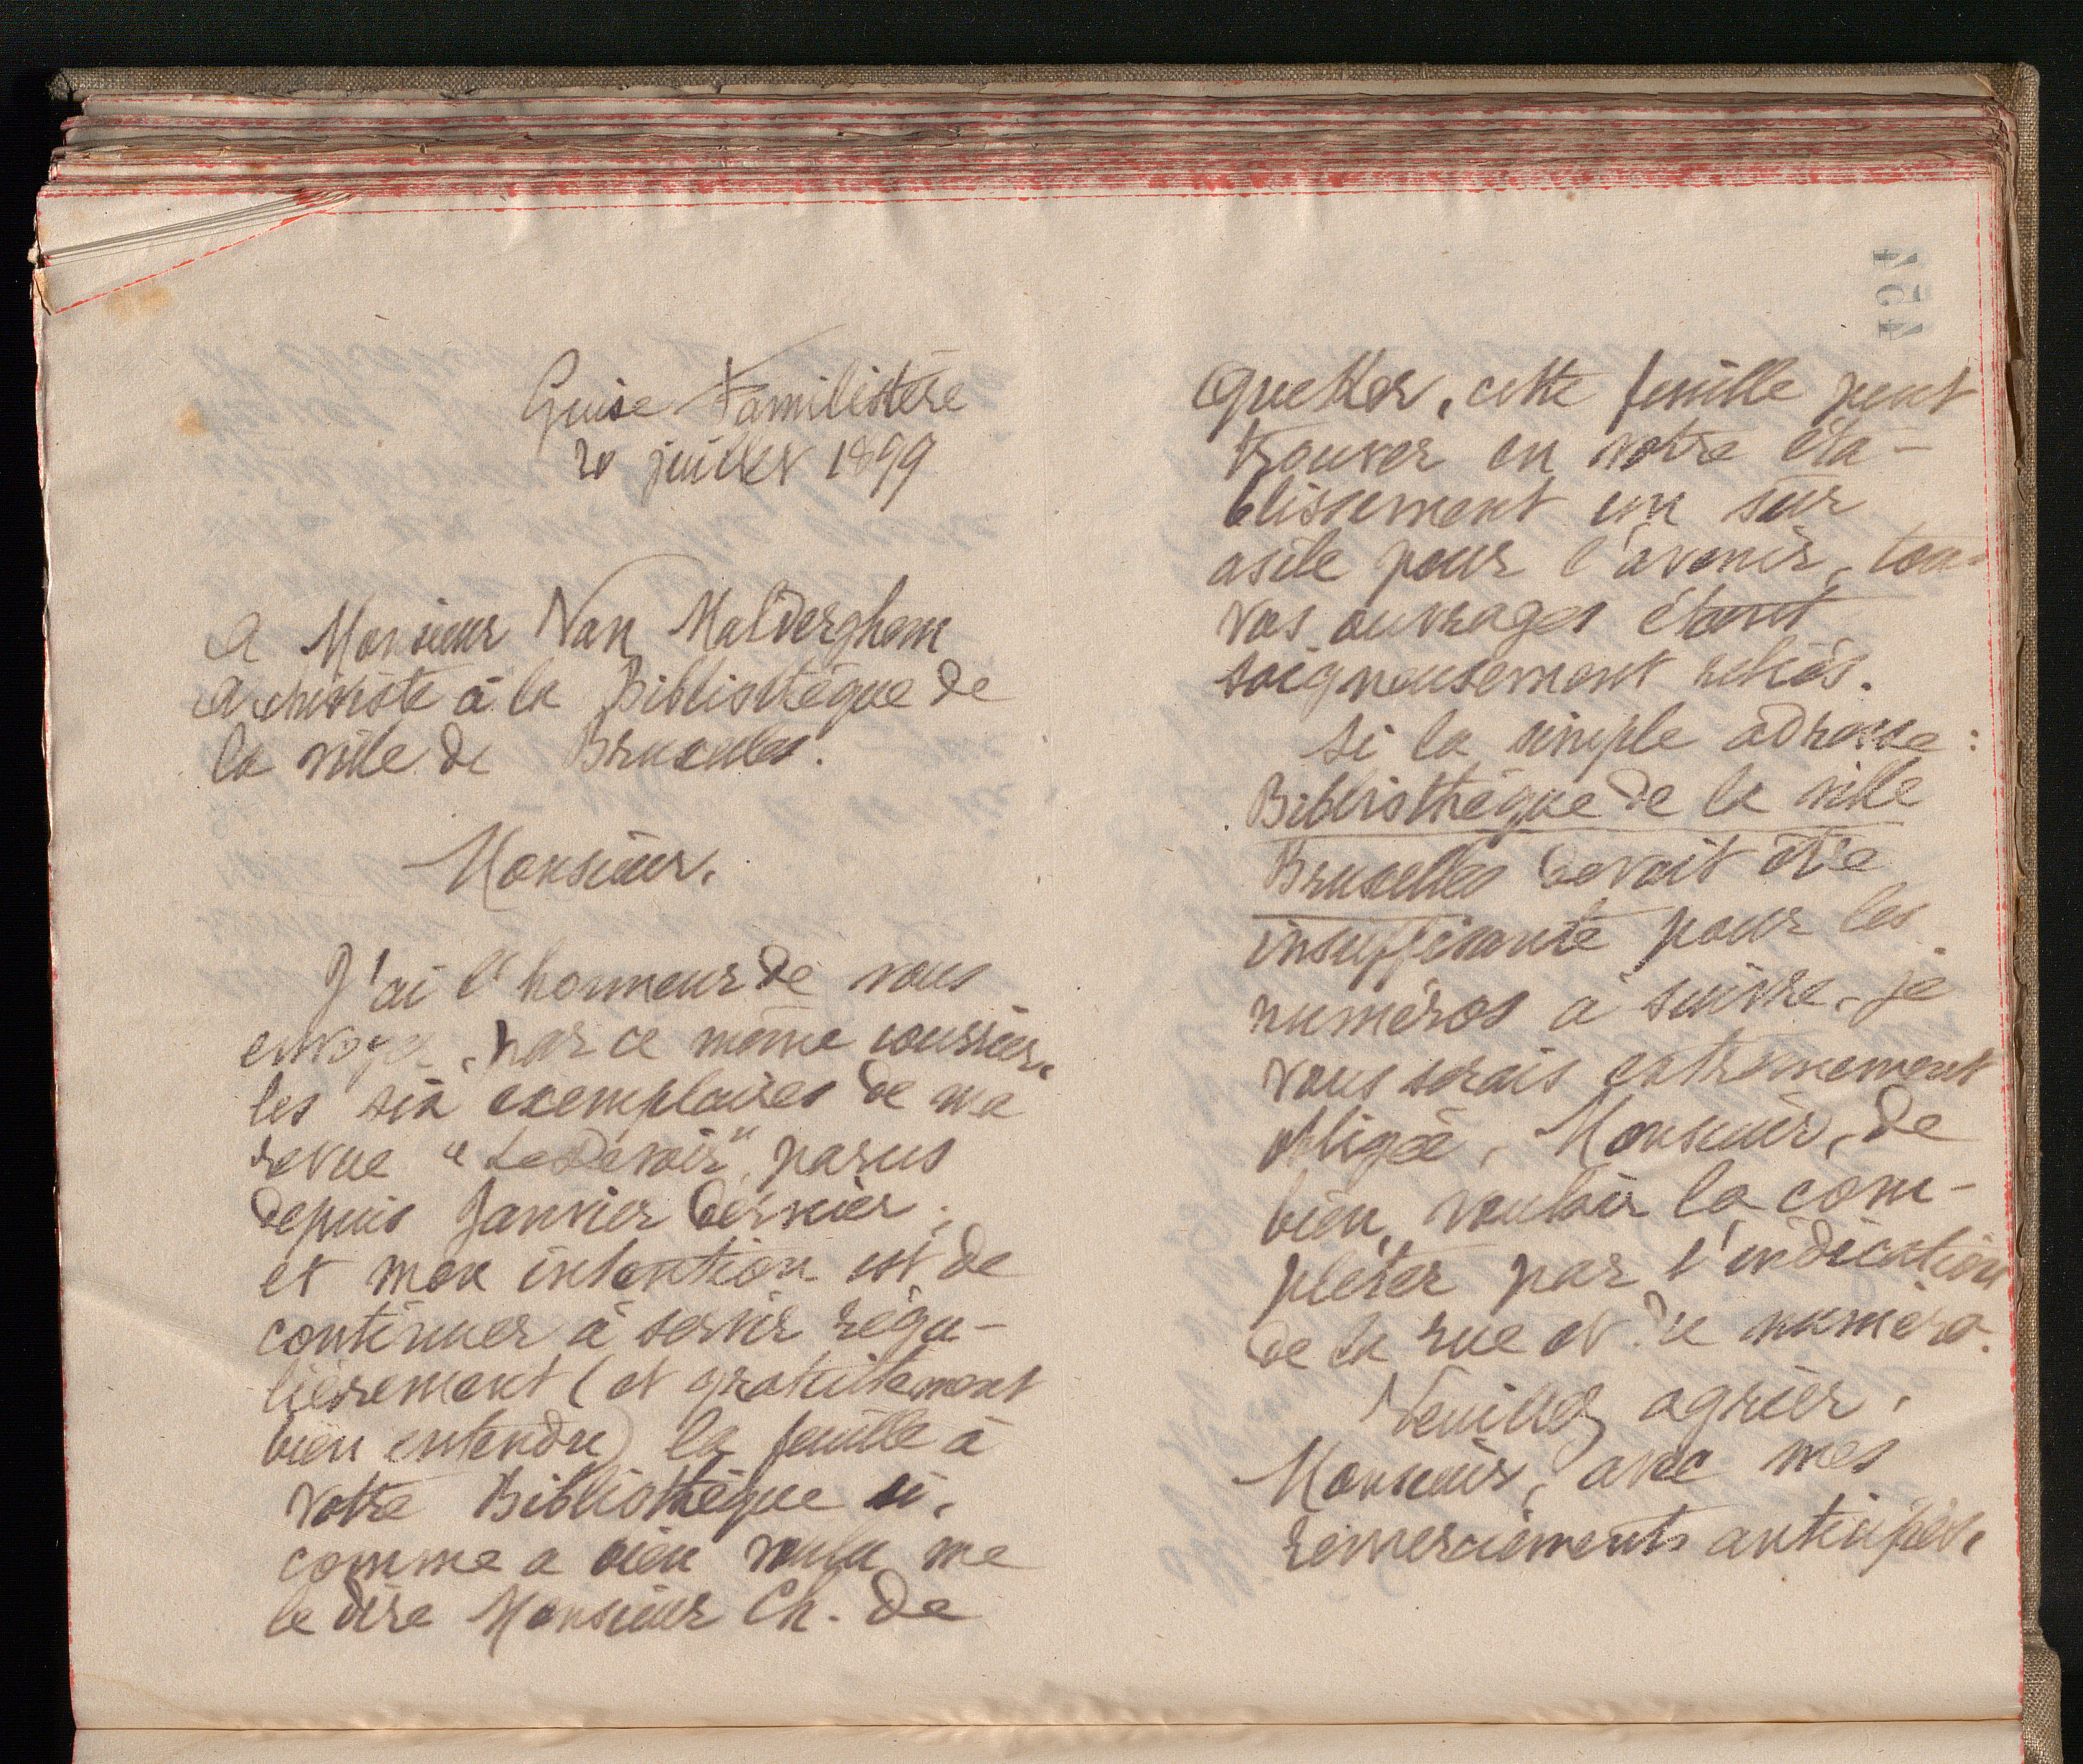 Guise Familistère
20 juillet 1899
A Monsieur Van Malderghem
Archiviste à la Bibliothèque de
la ville de Bruxelles.
Monsieur,
J'ai l'honneur de vous
envoyer, par ce même courrier,
les six exemplaires de ma
revue "Le Devoir", parus
depuis Janvier dernier;
et mon intention est de
continuer à servir régu-
lièrement (et gratuitement
bien entendu) la feuille à
votre Bibliothèque si,
comme a bien voulu me
le dire Monsieur Ch. de
Quekker, cette feuille peut
trouver en votre éta-
blissement un sûr
asile pour l'avenir, tous
vos ouvrages étant
soigneusement reliés.
Si la simple adresse :
Bibliothèque de la ville
Bruxelles devait être
insuffisante pour les
numéros à suivre, je
vous serais extrêmement
obligée, Monsieur, de
bien vouloir la com-
pléter par l'indication
de la rue et du numéro.
Veuillez agréer,
Monsieur, avec mes
remerciements anticipés,